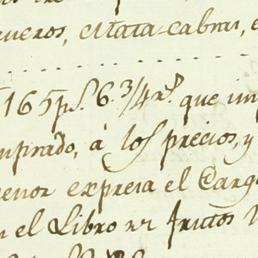 ueros, Mata-cabras, e
165 ps. 6.3/4 rs. que im
nspirado, à los precios, y
enor expresa el Carg
n el Libro de frutos